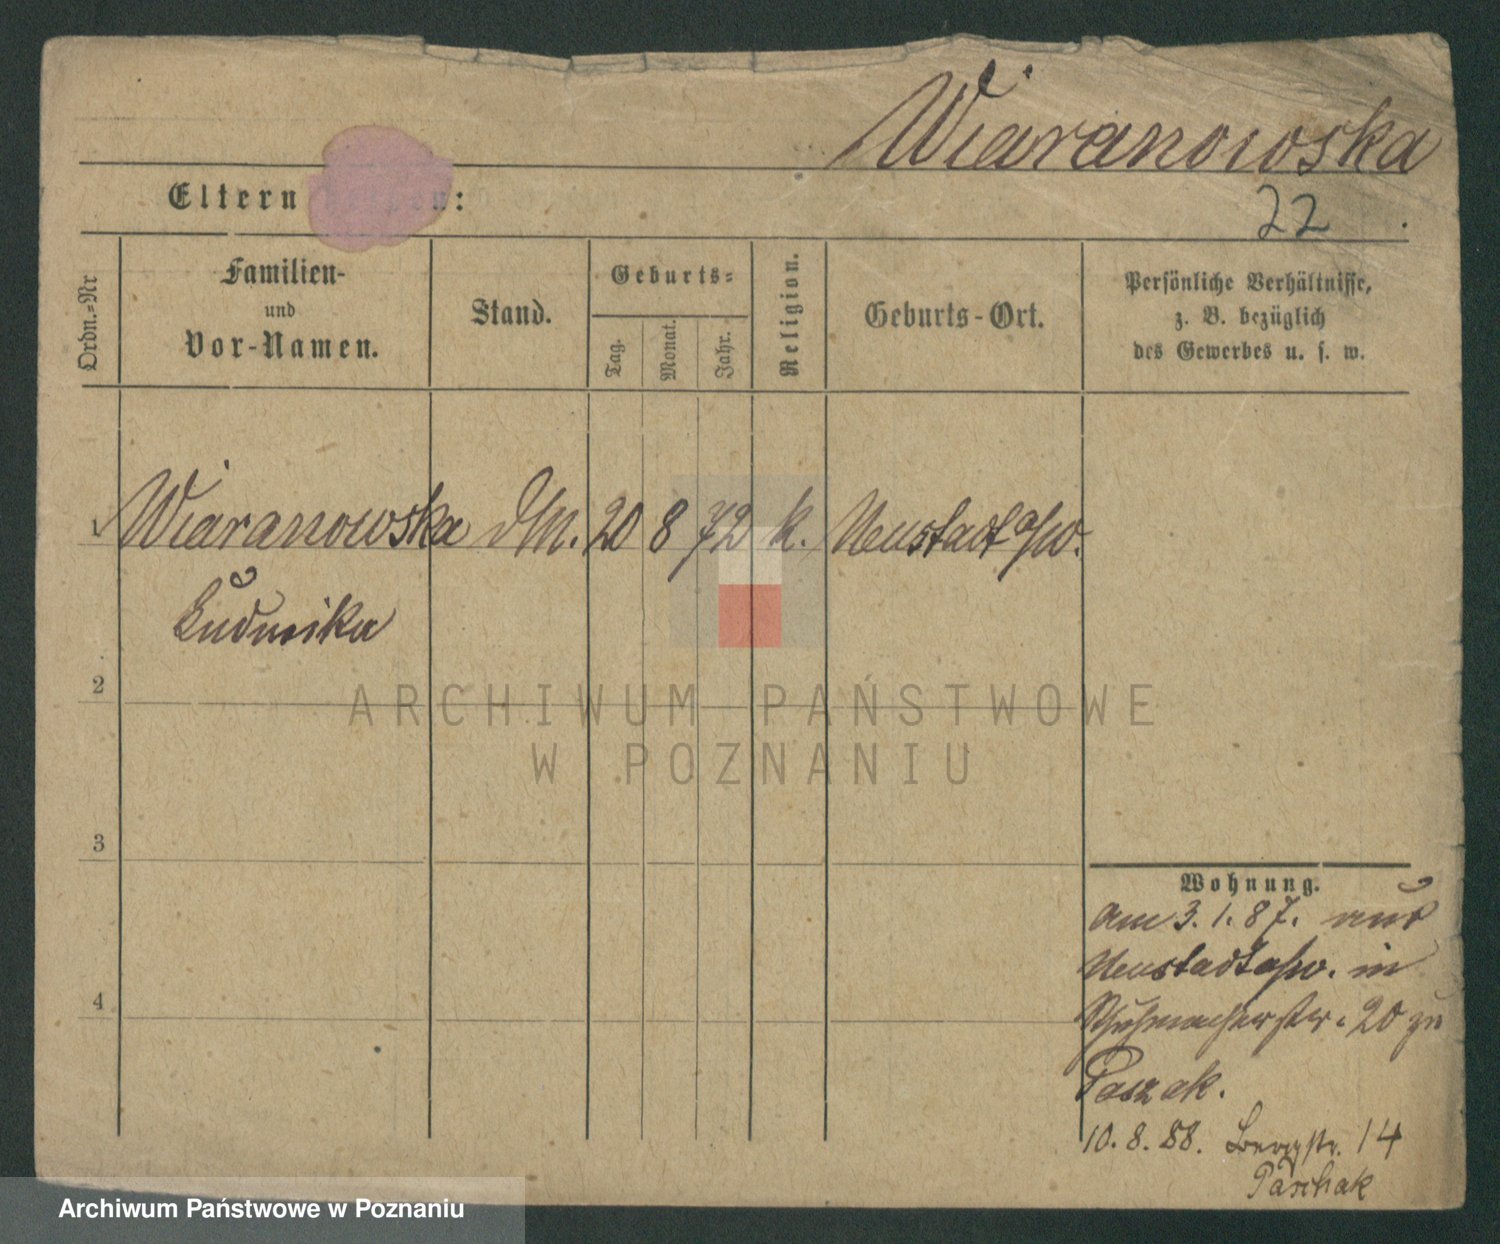 Wiaranowska
22
Eltern hießen:
Ordn.-Nr
Familien-
und
Vor-Namen.
Stand.
Geburts-
Tag.
Monat.
Jahr.
Religion.
Geburts-Ort.
Persönliche Verhältnisse,
z. B. bezüglich
des Gewerbes u. s. w.
1 Wiaranowska DM. 20 8 72 k. Neustadt a/W.
Ludwika
2
3
4
Wohnung.
am 3.1.87. aus
Neustadt a/w. in
Schuhmacherstr. 20 zu
Paszak.
10.8.88. Bergstr. 14
Paschak
ARCHIWUM PAŃSTWOWE
W POZNANIU
Archiwum Państwowe w Poznaniu